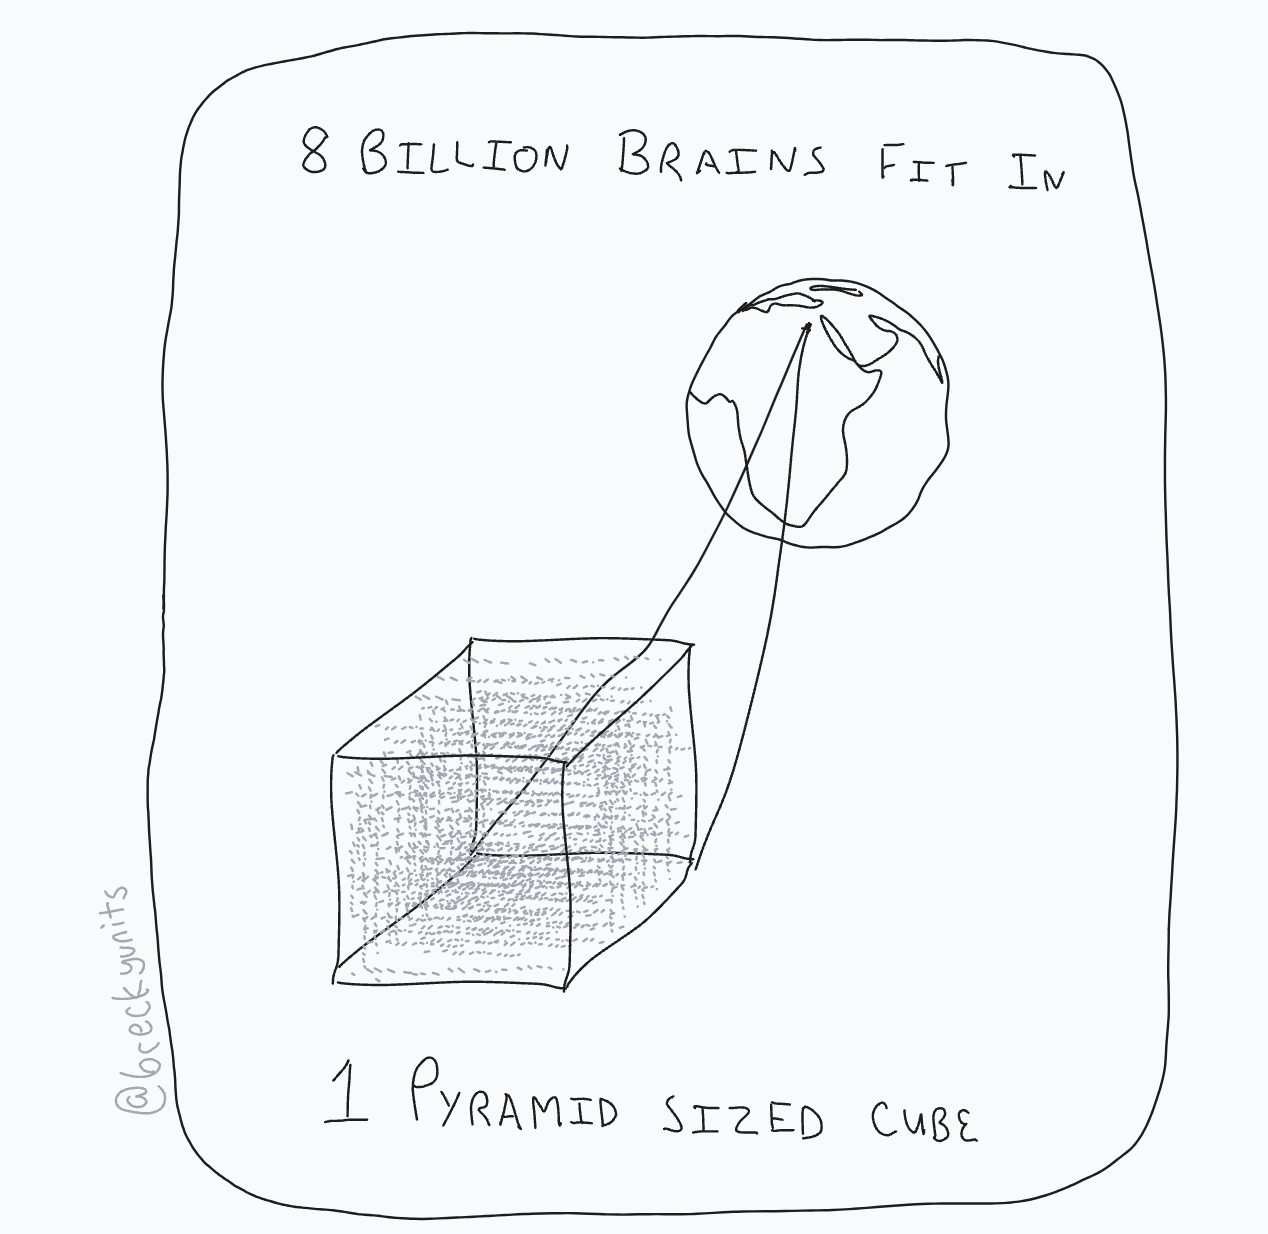 8 BILLION BRAINS FIT IN
1 PYRAMID SIZED CUBE
@breckyunits